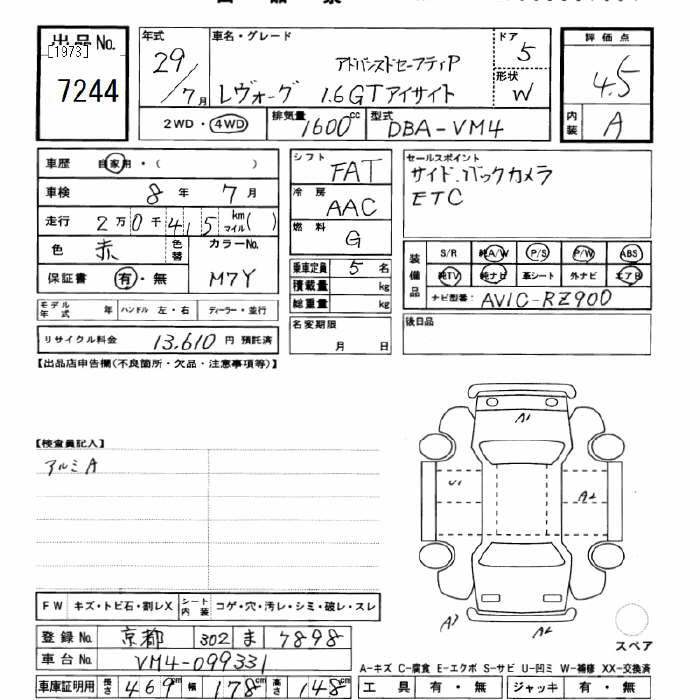 出品No. [1973]
7244
年式 29/7月
車名・グレード アドバンスドセーフティP
レヴォーグ 1.6GTアイサイト
ドア 5
形状 W
評価点 4.5
内装 A
2WD・4WD 排気量 1600cc 型式 DBA-VM4
車歴 自家用・( )
車検 8年 7月
走行 2万0千4 1 5 km マイル( )
色 赤 色替 カラーNo. M7Y
保証書 有・無
モデル年式 年 ハンドル 左・右 ディーラー・並行
リサイクル料金 13,610 円 預託済
シフト FAT
冷房 AAC
燃料 G
乗車定員 5 名
積載量 kg
総重量 kg
名変期限 月 日
セールスポイント
サイド.バックカメラ
ETC
装備品 S/R 純A/W P/S P/W ABS
純TV 純ナビ 革シート 外ナビ エアB
ナビ型番: AVIC-RZ900
後日品
【出品店申告欄(不良箇所・欠品・注意事項等)】
【検査員記入】
アルミA
A1
U1
A2
A3
A2
スペア
FW キズ・トビ石・割レX シート内装 コゲ・穴・汚レ・シミ・破レ・スレ
登録No. 京都 302 ま 7898
車台No. VM4-099331
車庫証明用 長さ 469cm 幅 178cm 高さ 148cm
A-キズ C-腐食 E-エクボ S-サビ U-凹ミ W-補修 XX-交換済
工具 有・無 ジャッキ 有・無